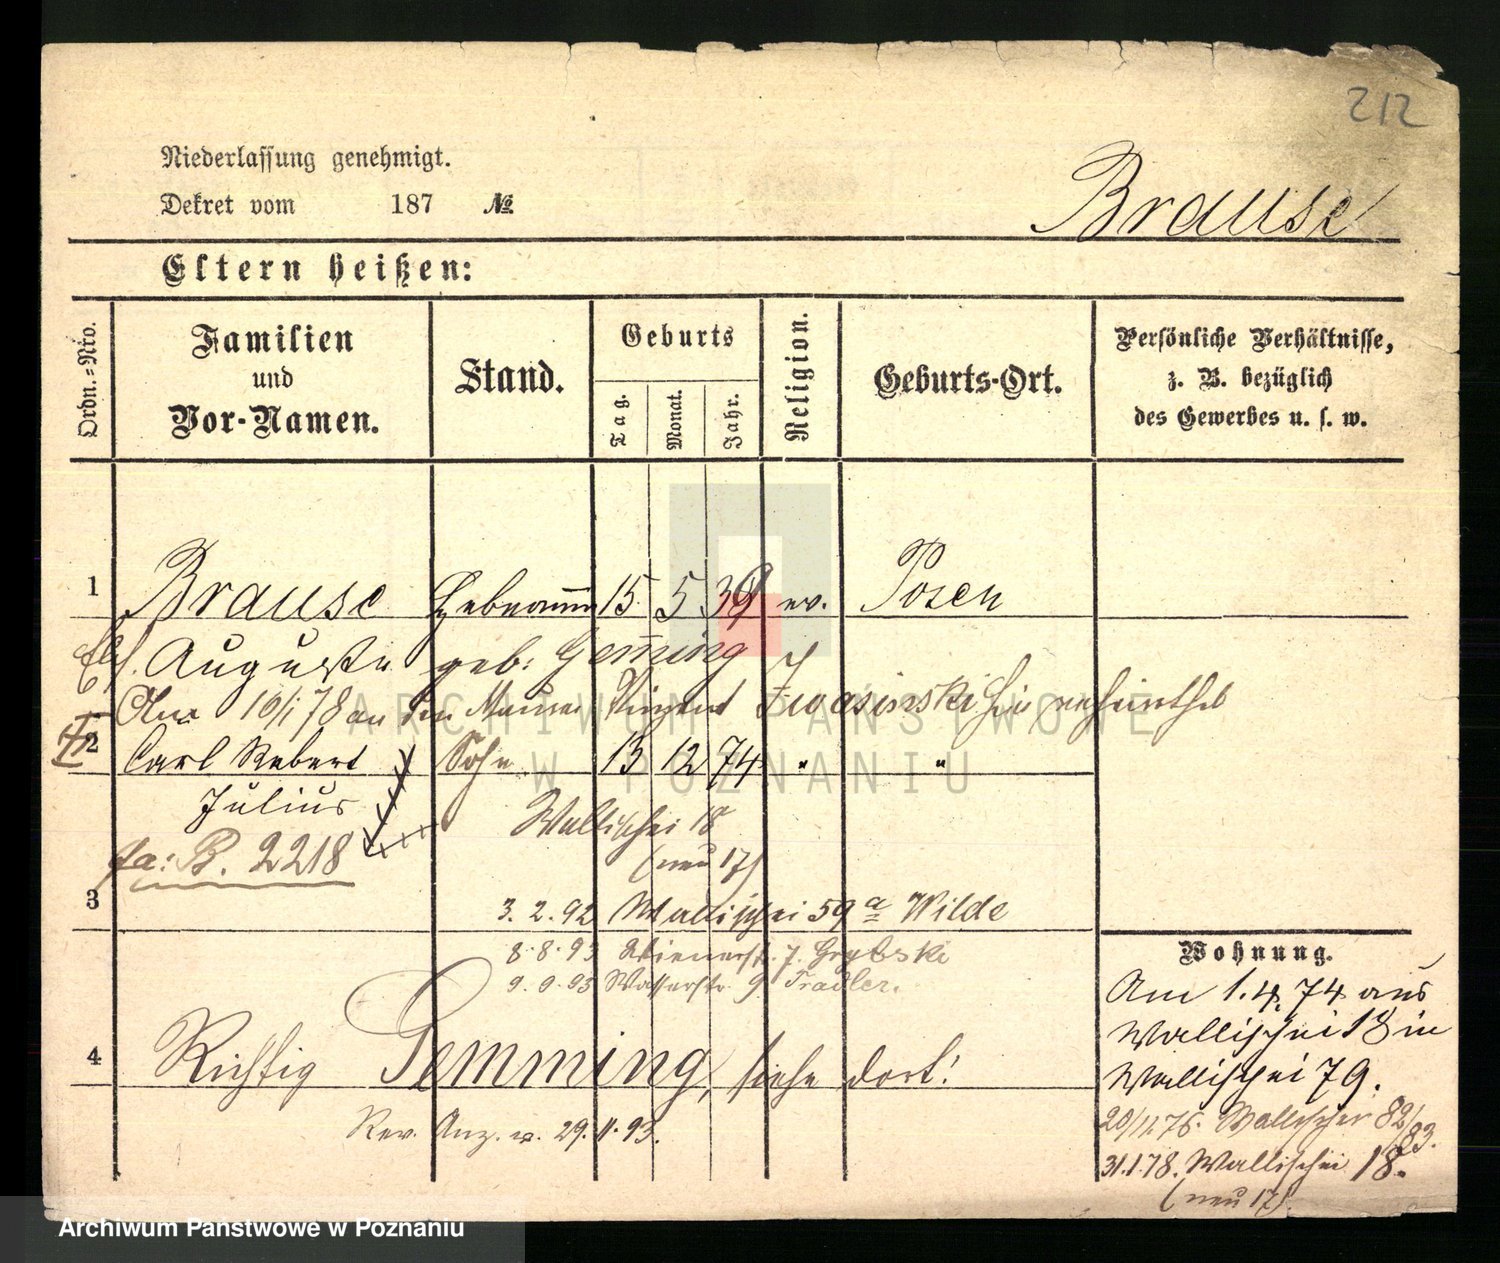 212
Niederlassung genehmigt.
Dekret vom 187 №
Brause
Eltern heißen:
Ordn.-Nro.
Familien
und
Vor-Namen.
Stand.
Geburts
Tag.
Monat.
Jahr.
Religion.
Geburts-Ort.
Persönliche Verhältnisse,
z. B. bezüglich
des Gewerbes u. s. w.
1 Brause Hebeamme 15 5 39 ev. Posen
Auguste geb: Gemming
16/1 78 an den Maurer Vinzent verheirathet
ARCHIWUM PAŃSTWOWE
W POZNANIU
2 Carl Robert Sohn 13 12 74 " "
Julius
Wallischei 18
(neu 17)
fa: B. 2218
3
3.2.92 Wallischei 59a Wilde
8.8.93 Wienerstr. 7. Grybski
9.9.93 Wasserstr. 9
4 Richtig Pemming, siehe dort!
Rev. Anz. v. 29.11.93.
Wohnung.
Am 1.4.74 aus
Wallischei 18 in
Wallischei 79.
20/11 76. Wallischei 82/83.
31.1.78. Wallischei 18.
(neu 17)
Archiwum Państwowe w Poznaniu